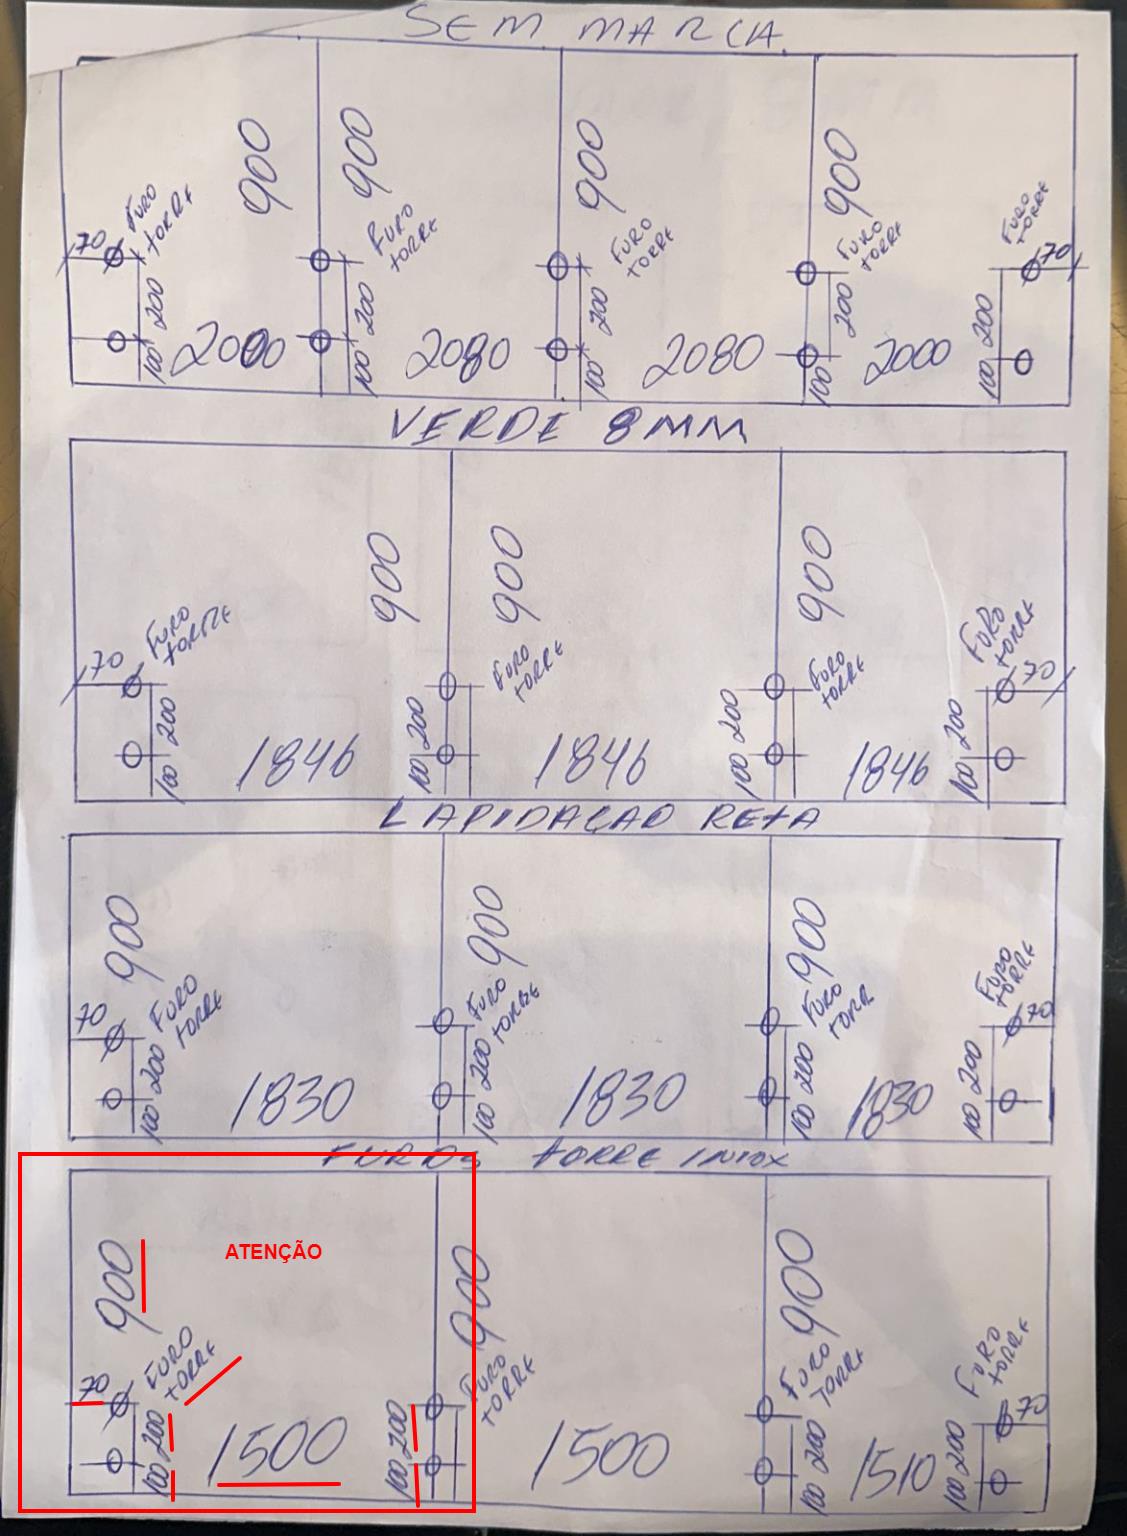 SEM MARCA.
900 900 900 900
70 FURO TORRE FURO TORRE FURO TORRE FURO TORRE FURO TORRE 70
200 200 200 200 200
100 2000 100 2080 100 2080 100 2000 100
VERDE 8MM
900 900 900
70 FURO TORRE FURO TORRE FURO TORRE FURO TORRE 70
200 200 200 200
100 1846 100 1846 100 1846 100
LAPIDAÇAO RETA
900 900 900
70 FURO TORRE FURO TORRE FURO TORR FURO TORRE 70
200 200 200 200
100 1830 100 1830 100 1830 100
FUROS TORRE INOX
ATENÇÃO
900 900 900
70 FURO TORRE FURO TORRE FURO TORRE FURO TORRE 70
200 200 200 200
100 1500 100 1500 100 1510 100